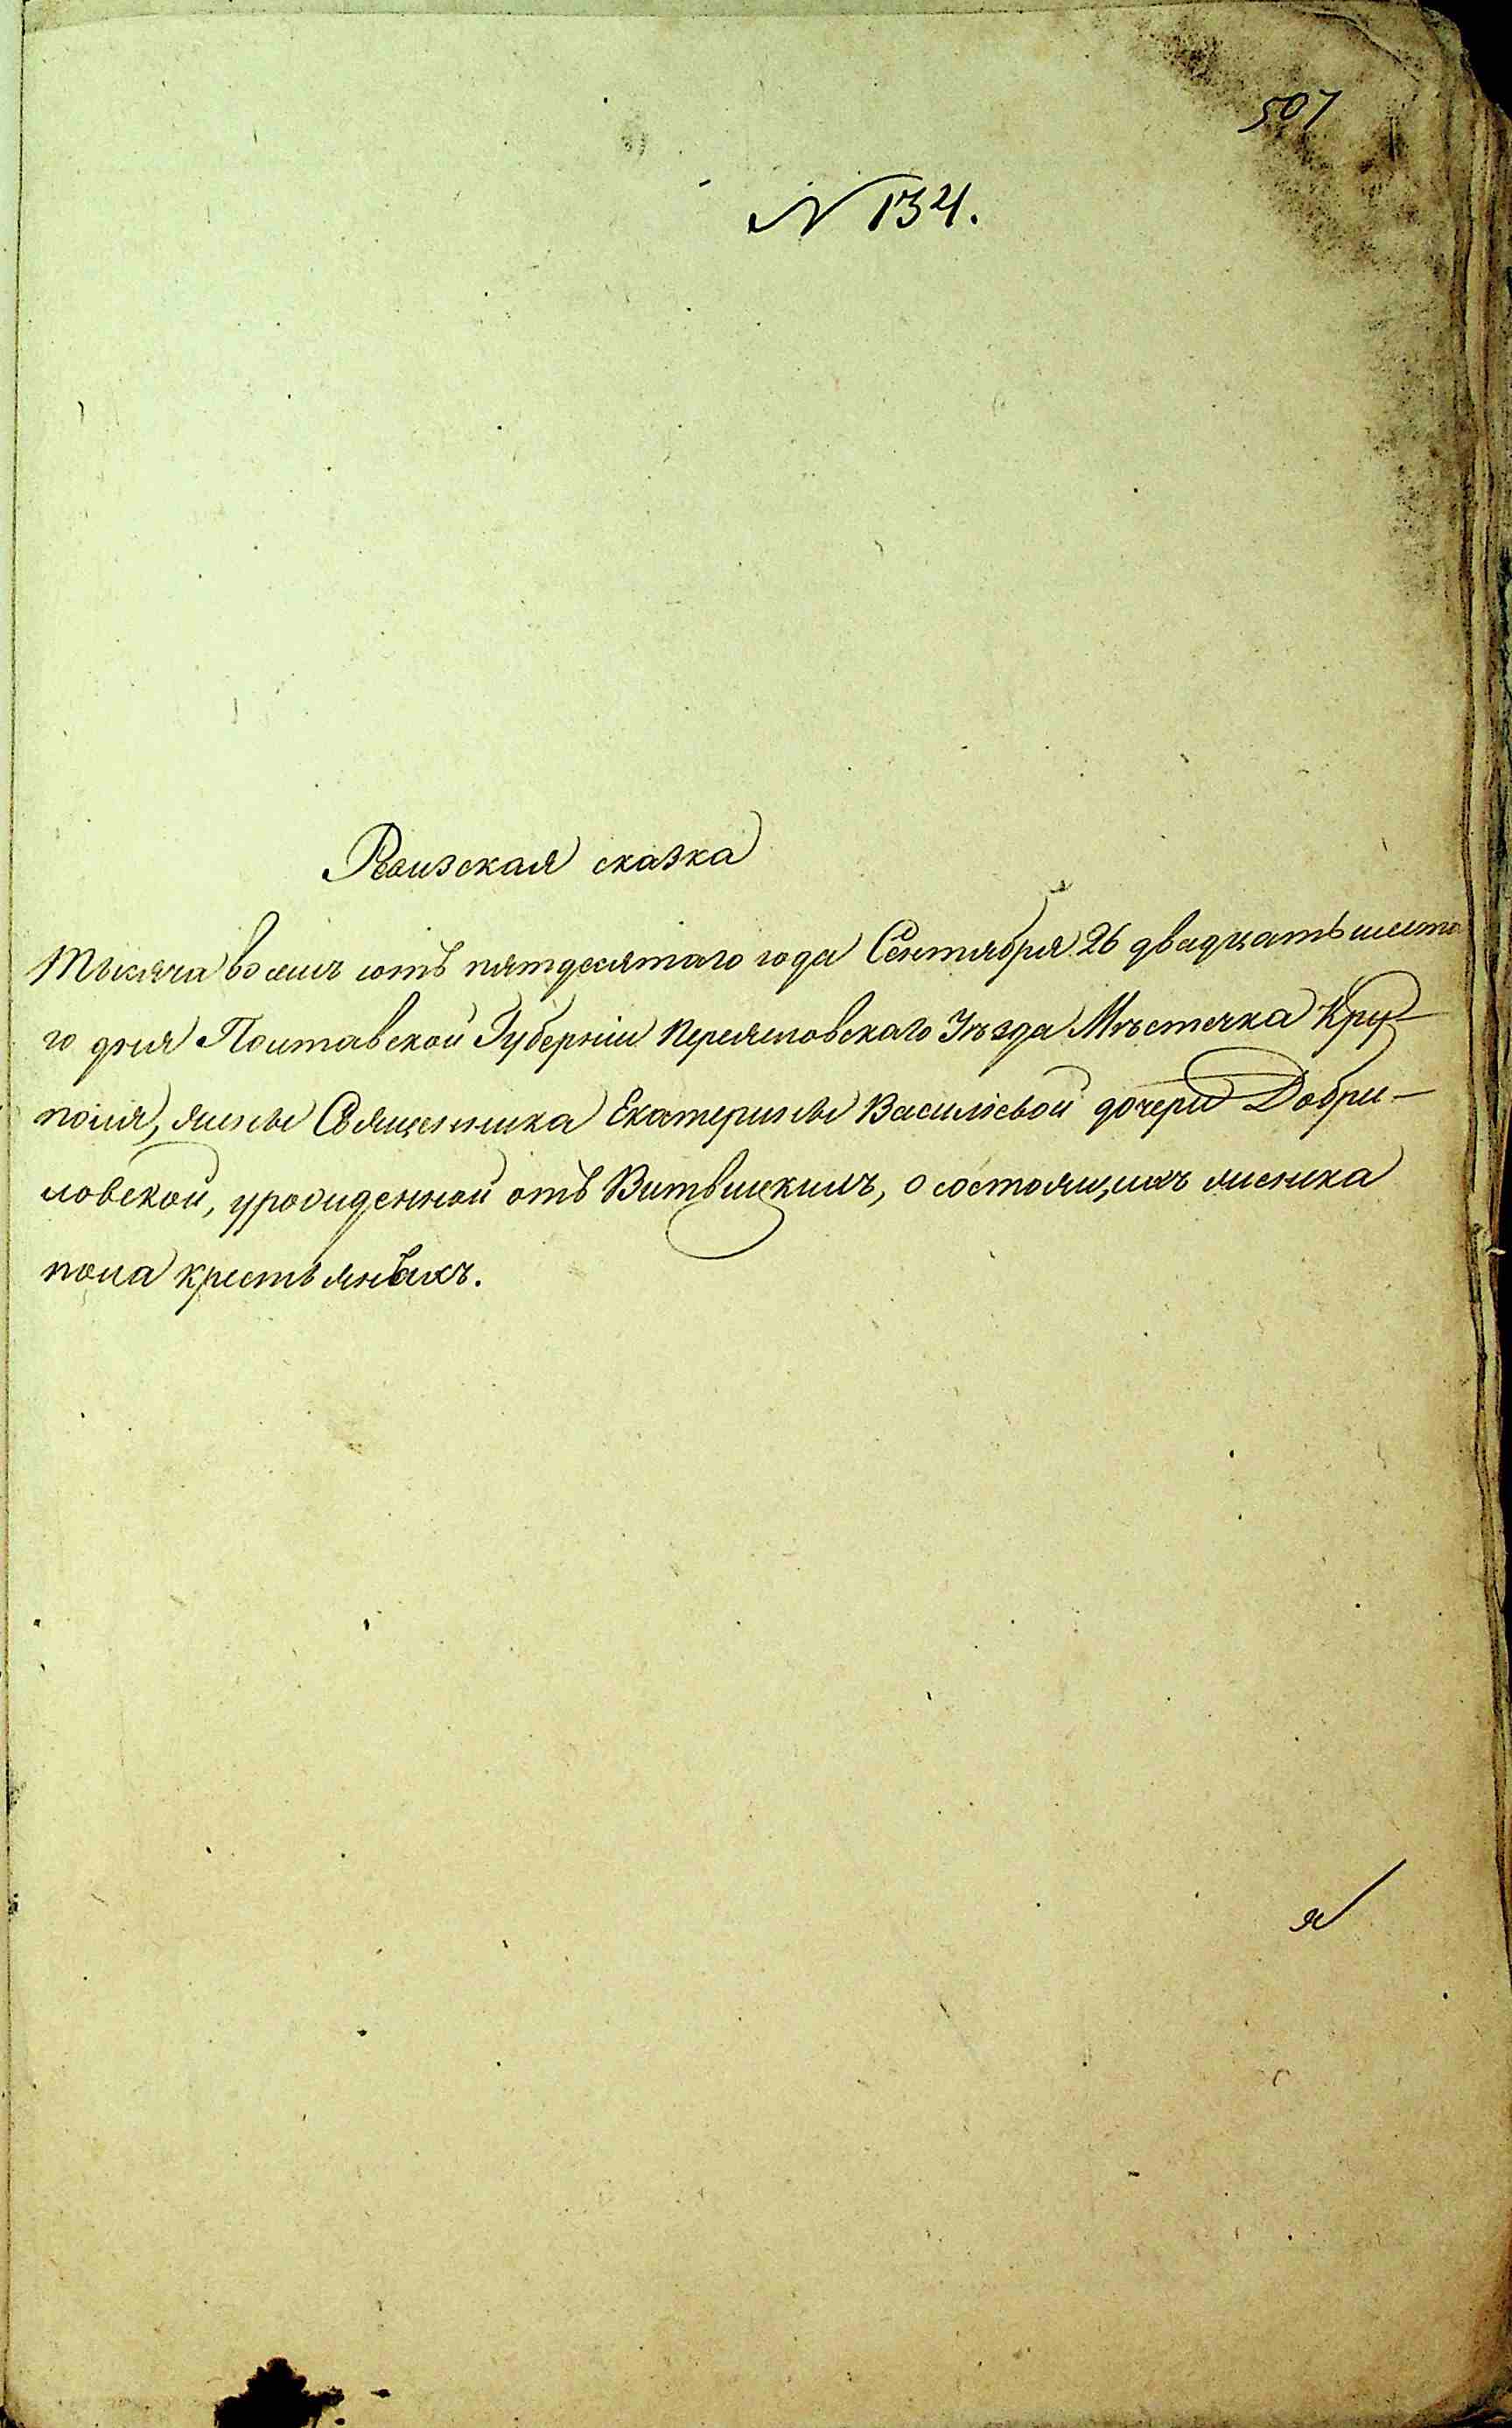 507
N 134.
Ревизская сказка
Тысяча восемь сотъ пятдесятаго года Сентября 26 двадцать шеста
го дня Полтавской Губерніи Переяславского Уѣзда Мѣстечка Кру-
поля, жены Священника Екатерины Василіевой дочери Добри-
ловской, урожденной отъ Витвицкихъ, о состоящихъ женска
пола крестьянъкахъ.